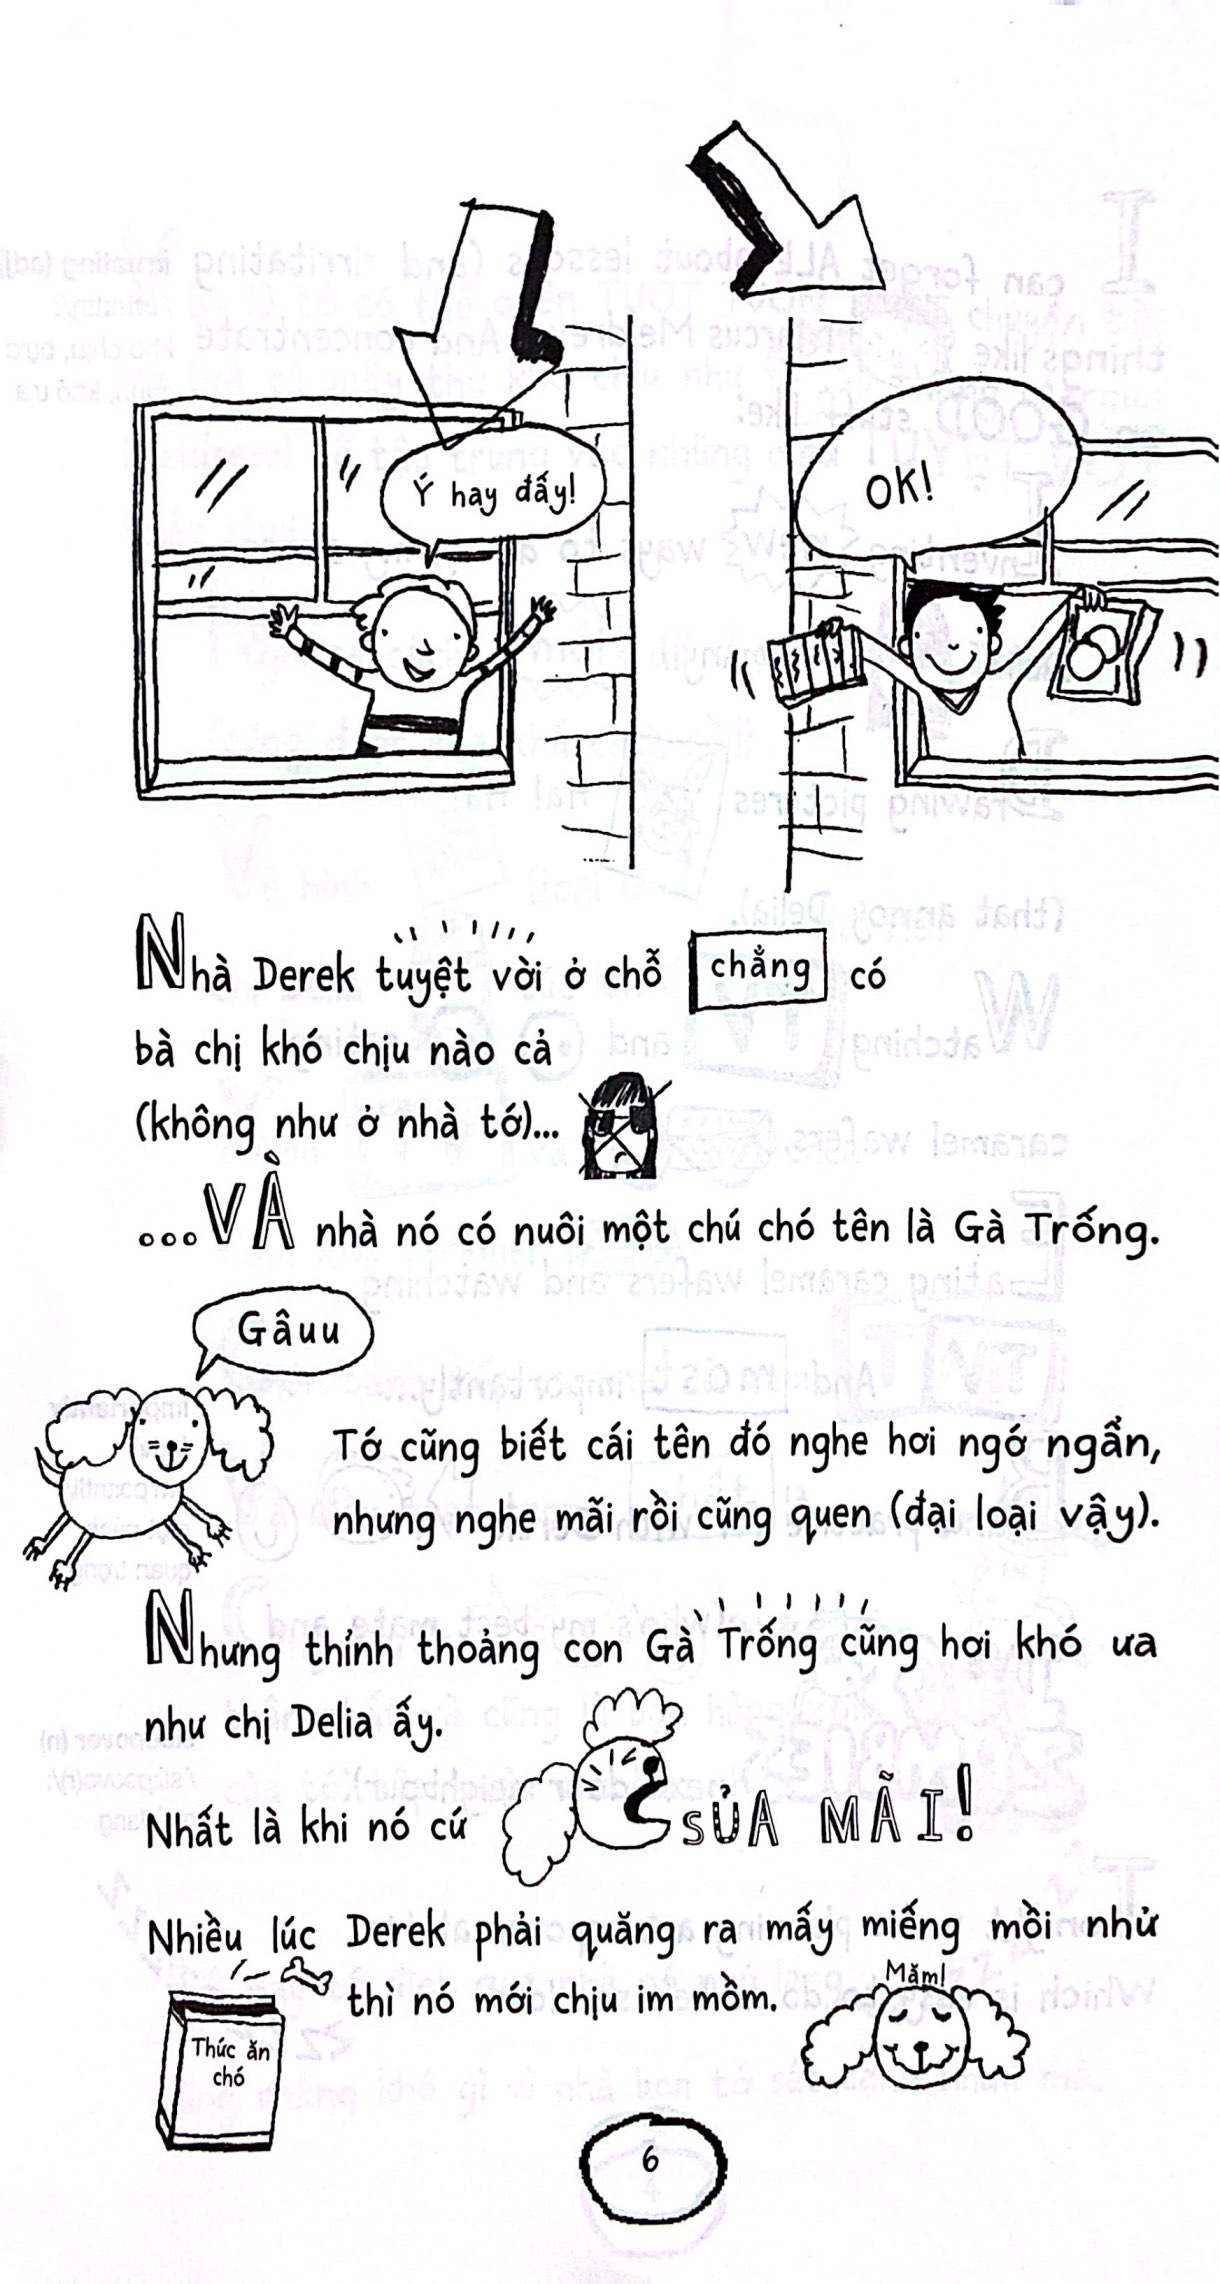 Ý hay đấy!
OK!
Nhà Derek tuyệt vời ở chỗ chẳng có
bà chị khó chịu nào cả
(không như ở nhà tớ)...
...VÀ nhà nó có nuôi một chú chó tên là Gà Trống.
Gâuu
Tớ cũng biết cái tên đó nghe hơi ngớ ngẩn,
nhưng nghe mãi rồi cũng quen (đại loại vậy).
Nhưng thỉnh thoảng con Gà Trống cũng hơi khó ưa
như chị Delia ấy.
Nhất là khi nó cứ SỦA MÃI!
Nhiều lúc Derek phải quăng ra mấy miếng mồi nhử
thì nó mới chịu im mồm.
Măm!
Thức ăn
chó
6